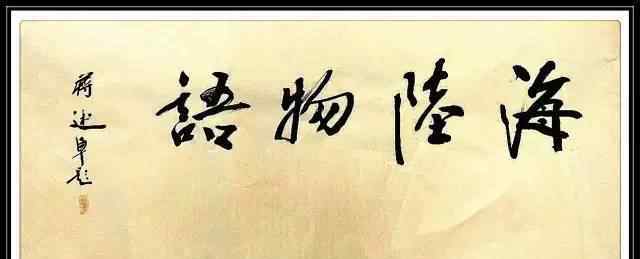 海陸物語
蔣述卓題